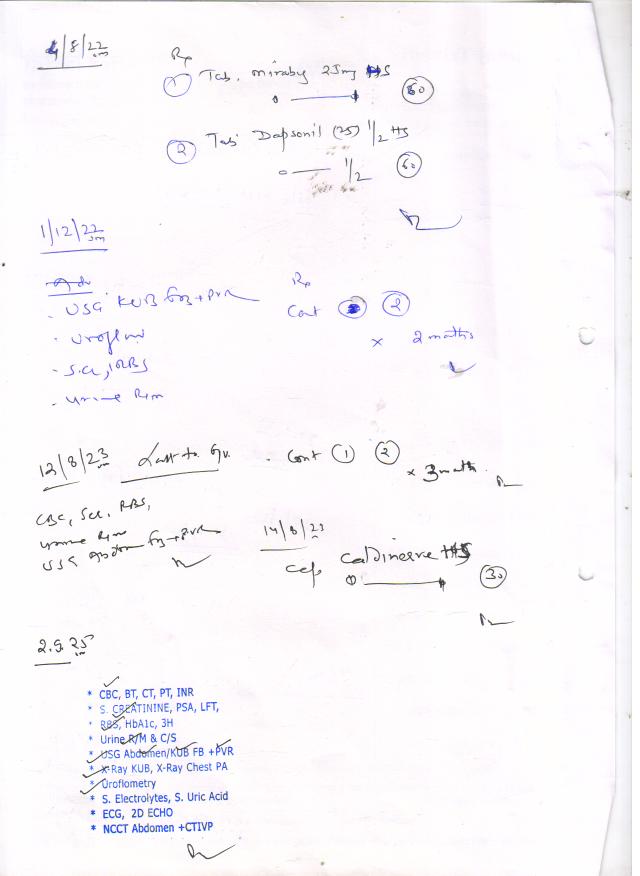 4/8/22
Rp
① Tab. Miraby 25mg HS
60
② Tab Dapsonil (25) 1/2 HS
1/2 60
1/12/22
Adv
· USG KUB FB + PVR
Rp
Cont ②
· Uroflow
x 2 months
· S.Cr, RBS
· Urine R/m
12/8/23 Last to Gu. Cont ① ②
x 3 month
CBC, Scr. RBS,
Urine R/m
14/8/23
USG Abdomen FB + PVR
Cap Caldinerve HS
30
2.9.25
* CBC, BT, CT, PT, INR
* S. CREATININE, PSA, LFT,
* RBS, HbA1c, 3H
* Urine R/M & C/S
* USG Abdomen/KUB FB +PVR
* X-Ray KUB, X-Ray Chest PA
* Uroflometry
* S. Electrolytes, S. Uric Acid
* ECG, 2D ECHO
* NCCT Abdomen +CTIVP